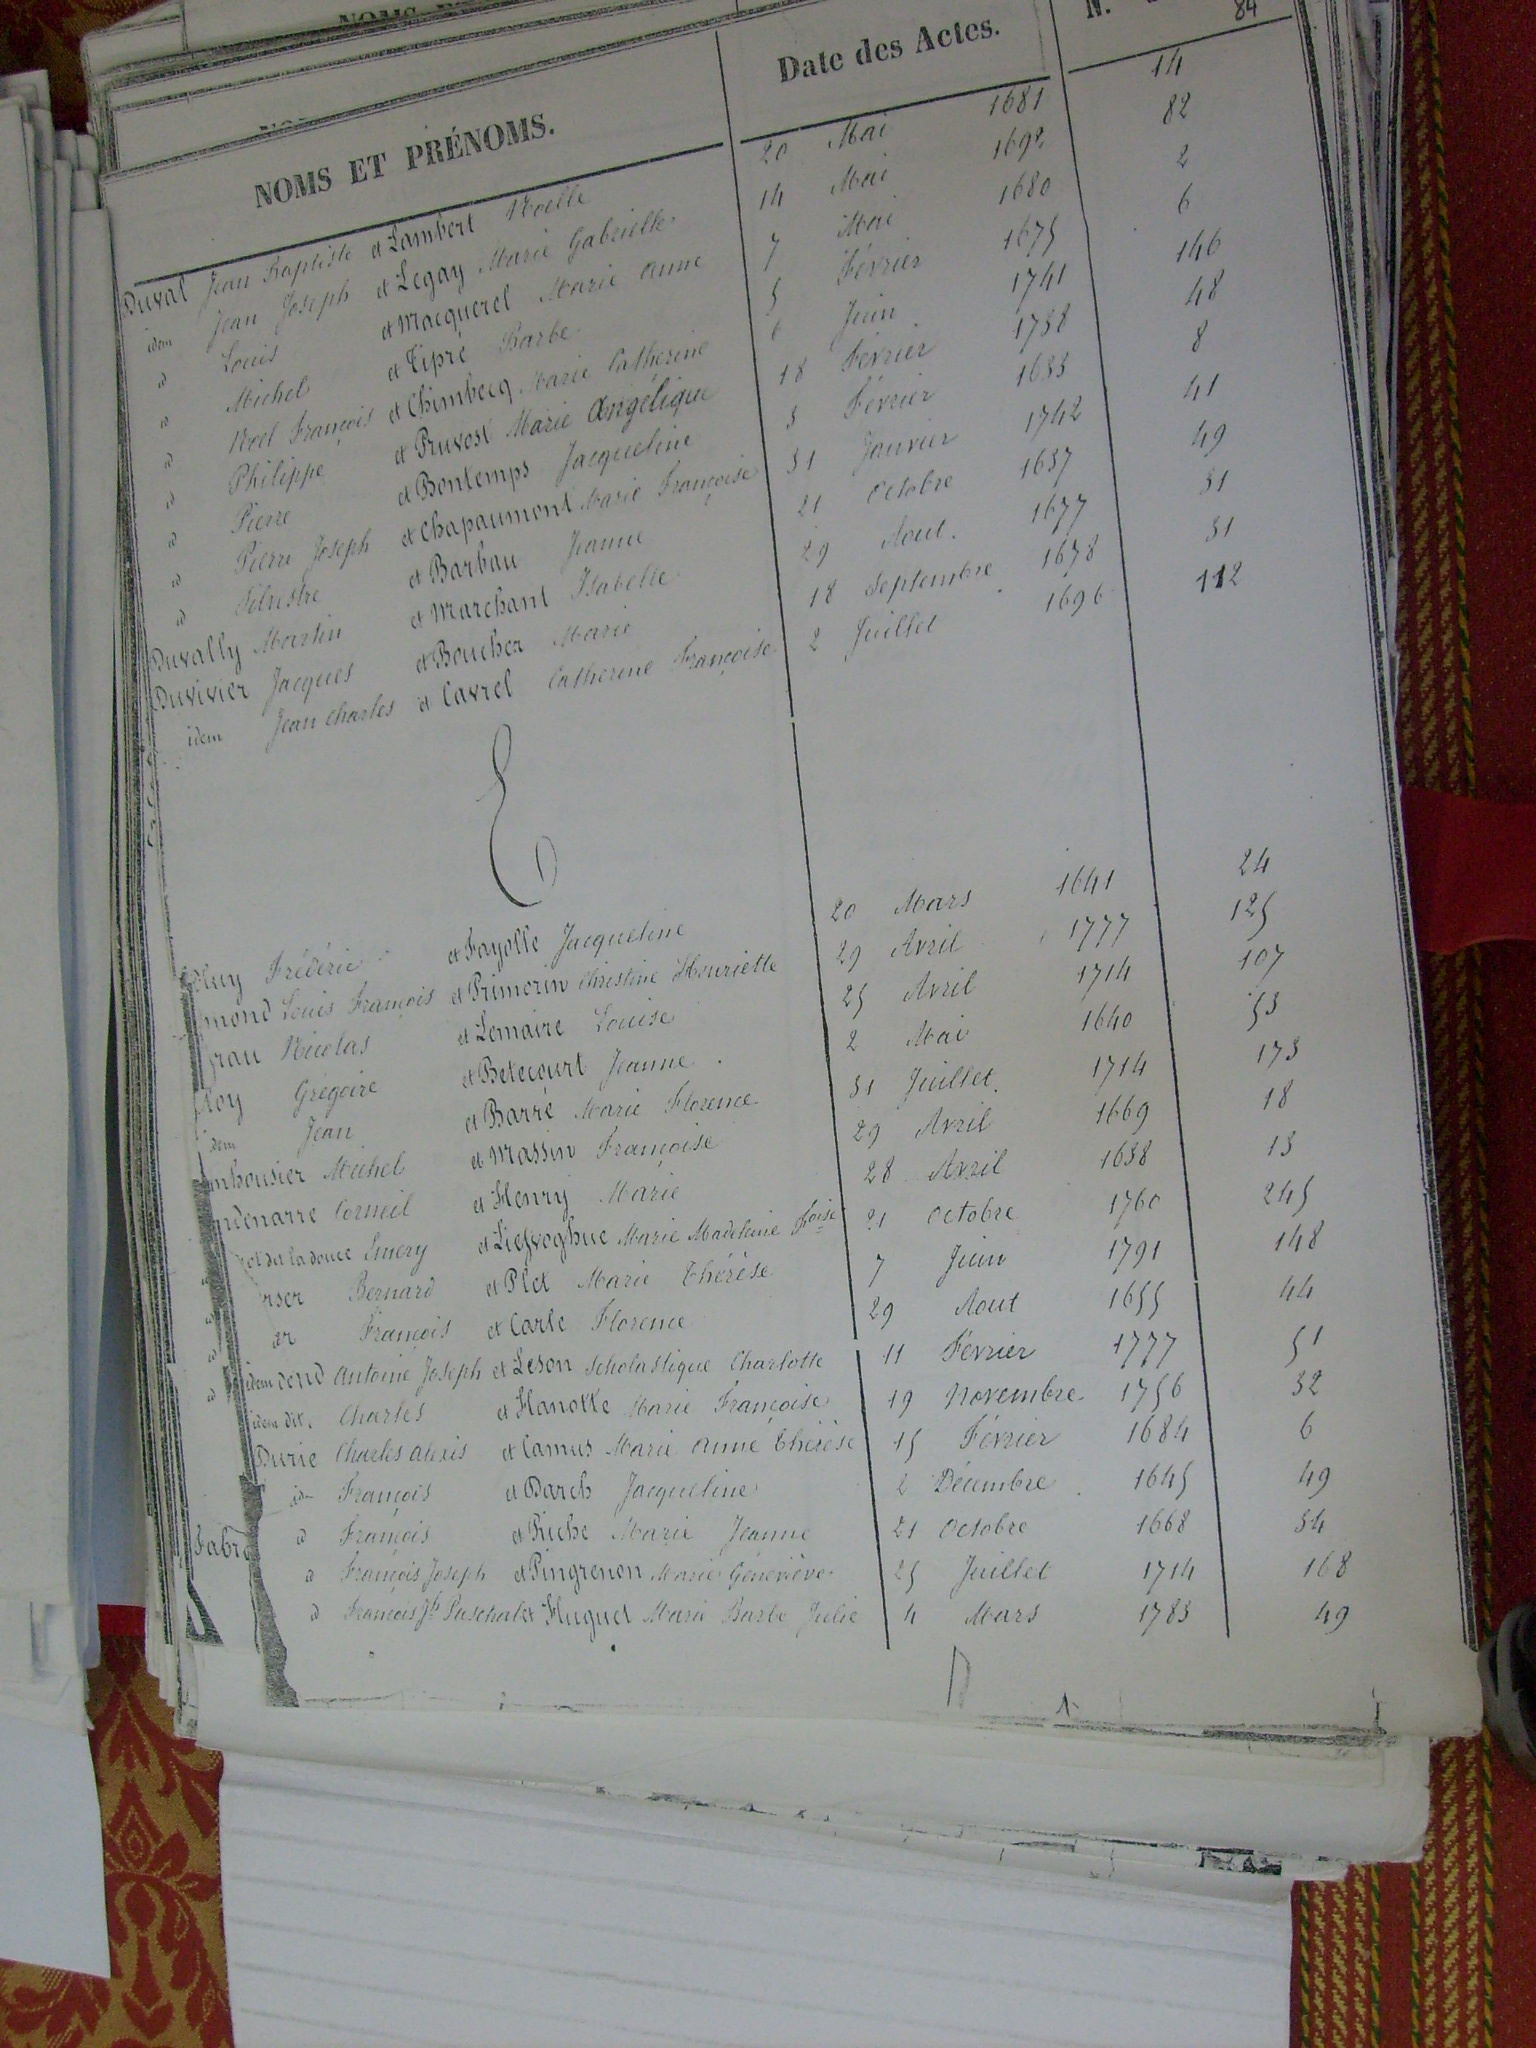 NOMS ET PRÉNOMS. Date des Actes. N. 84
Duval Jean Baptiste et Lambert Noelle 20 Mai 1681 14
idem Jean Joseph et Legay Marie Gabrielle 14 Mai 1692 82
id Louis et Macquerel Marie Anne 7 Mai 1680 2
id Michel et Tipré Barbe 5 Février 1675 6
id Noel François et Chimbecq Marie Catherine 6 Juin 1741 146
id Philippe et Pruvost Marie Angélique 18 Février 1738 48
id Pierre et Bontemps Jacqueline 3 Février 1633 8
id Pierre Joseph et Chapaumont Marie Françoise 31 Janvier 1742 41
id Silvestre et Barbau Jeanne 21 Octobre 1637 49
Duvally Martin et Marchant Isabelle 29 Aout 1677 31
Duvivier Jacques et Boucher Marie 18 Septembre 1638 31
idem Jean Charles et Cavrel Catherine Françoise 2 Juillet 1696 112
E
Frédéric et Fayolle Jacqueline 20 Mars 1641 24
mond Louis François et Primorin Christine Henriette 29 Avril 1777 125
rau Nicolas et Lemaire Louise 25 Avril 1714 107
loy Grégoire et Betecourt Jeanne 2 Mai 1640 53
idem Jean et Barré Marie Florence 31 Juillet 1714 173
mhousier Michel et Massin Françoise 29 Avril 1669 18
ndenarre Corneil et Henry Marie 28 Avril 1638 13
dit ladouce Emery et Liefvoghue Marie Madeleine foise 21 Octobre 1760 245
rser Bernard et Plet Marie Thérèse 7 Juin 1791 148
er François et Carle Florence 29 Aout 1655 44
id idem dend Antoine Joseph et Leson Scholastique Charlotte 11 Février 1777 51
idem dit. Charles et Hanotte Marie Françoise 19 Novembre 1756 32
Durie Charles Alexis et Camus Marie Anne Thérèse 15 Février 1684 6
id François et Darch Jacqueline 2 Décembre 1645 49
Fabr id François et Piche Marie Jeanne 21 Octobre 1668 34
id François Joseph et Pingrenon Marie Géneviève 25 Juillet 1714 168
id François Jh Paschal et Huguet Marie Barbe Julie 4 Mars 1783 49